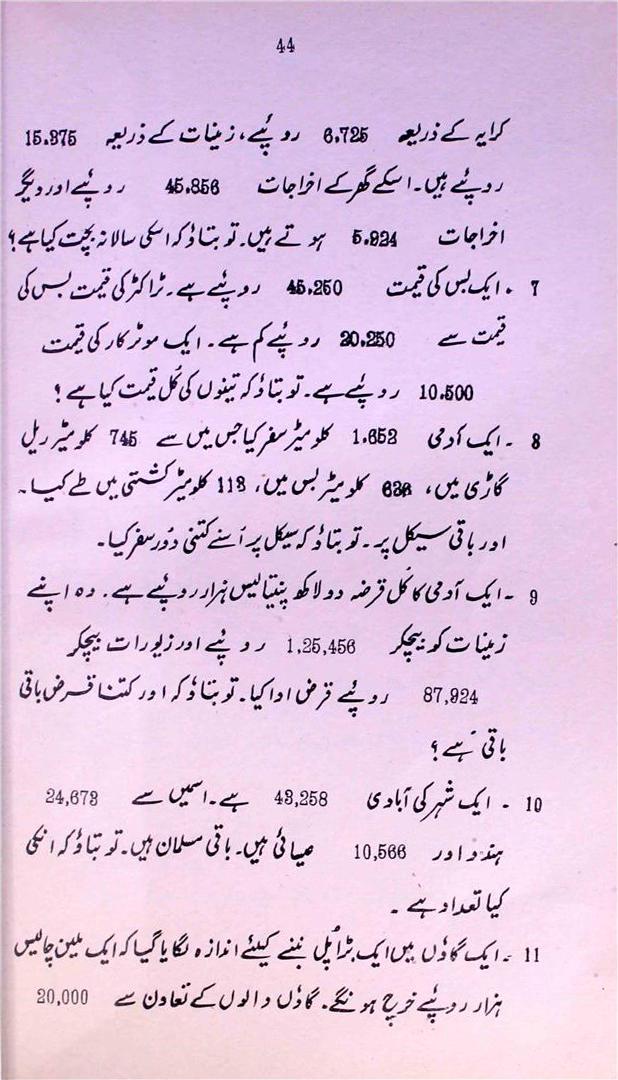 44
کرایہ کے ذریعہ 6,725 روپیے، زمینات کے ذریعہ 15,375
روپیے ہیں۔ اسکے گھر کے اخراجات 45,856 روپیے اور دیگر
اخراجات 5,924 ہوتے ہیں۔ تو بتاؤ کہ اسکی سالانہ بچت کیا ہے؟
7 ۔ ایک بس کی قیمت 45,250 روپیے ہے۔ ٹراکٹر کی قیمت بس کی
قیمت سے 20,250 روپیے کم ہے۔ ایک موٹر کار کی قیمت
10,500 روپیے ہے۔ تو بتاؤ کہ تینوں کی کُل قیمت کیا ہے؟
8 ۔ ایک آدمی 1,652 کلومیٹر سفر کیا جس میں سے 745 کلومیٹر ریل
گاڑی میں، 636 کلومیٹر بس میں، 118 کلومیٹر کشتی میں طے کیا۔
اور باقی سیکل پر۔ تو بتاؤ کہ سیکل پر اُسنے کتنی دُور سفر کیا۔
9 ۔ ایک آدمی کا کُل قرضہ دو لاکھ پنتیالیس ہزار روپیے ہے۔ وہ اپنے
زمینات کو بیچکر 1,25,456 روپیے اور زیورات بیچکر
87,924 روپیے قرض ادا کیا۔ تو بتاؤ کہ اور کتنا قرض باقی
باقی ہے؟
10 ۔ ایک شہر کی آبادی 43,258 ہے۔ اسمیں سے 24,673
ہندو اور 10,566 عیسائی ہیں۔ باقی مسلمان ہیں۔ تو بتاؤ کہ انکی
کیا تعداد ہے ۔
11 ۔ ایک گاؤں میں ایک بڑا پُل بننے کیلئے اندازہ لگایا گیا کہ ایک ملین چالیس
ہزار روپیے خرچ ہونگے۔ گاؤں والوں کے تعاون سے 20,000